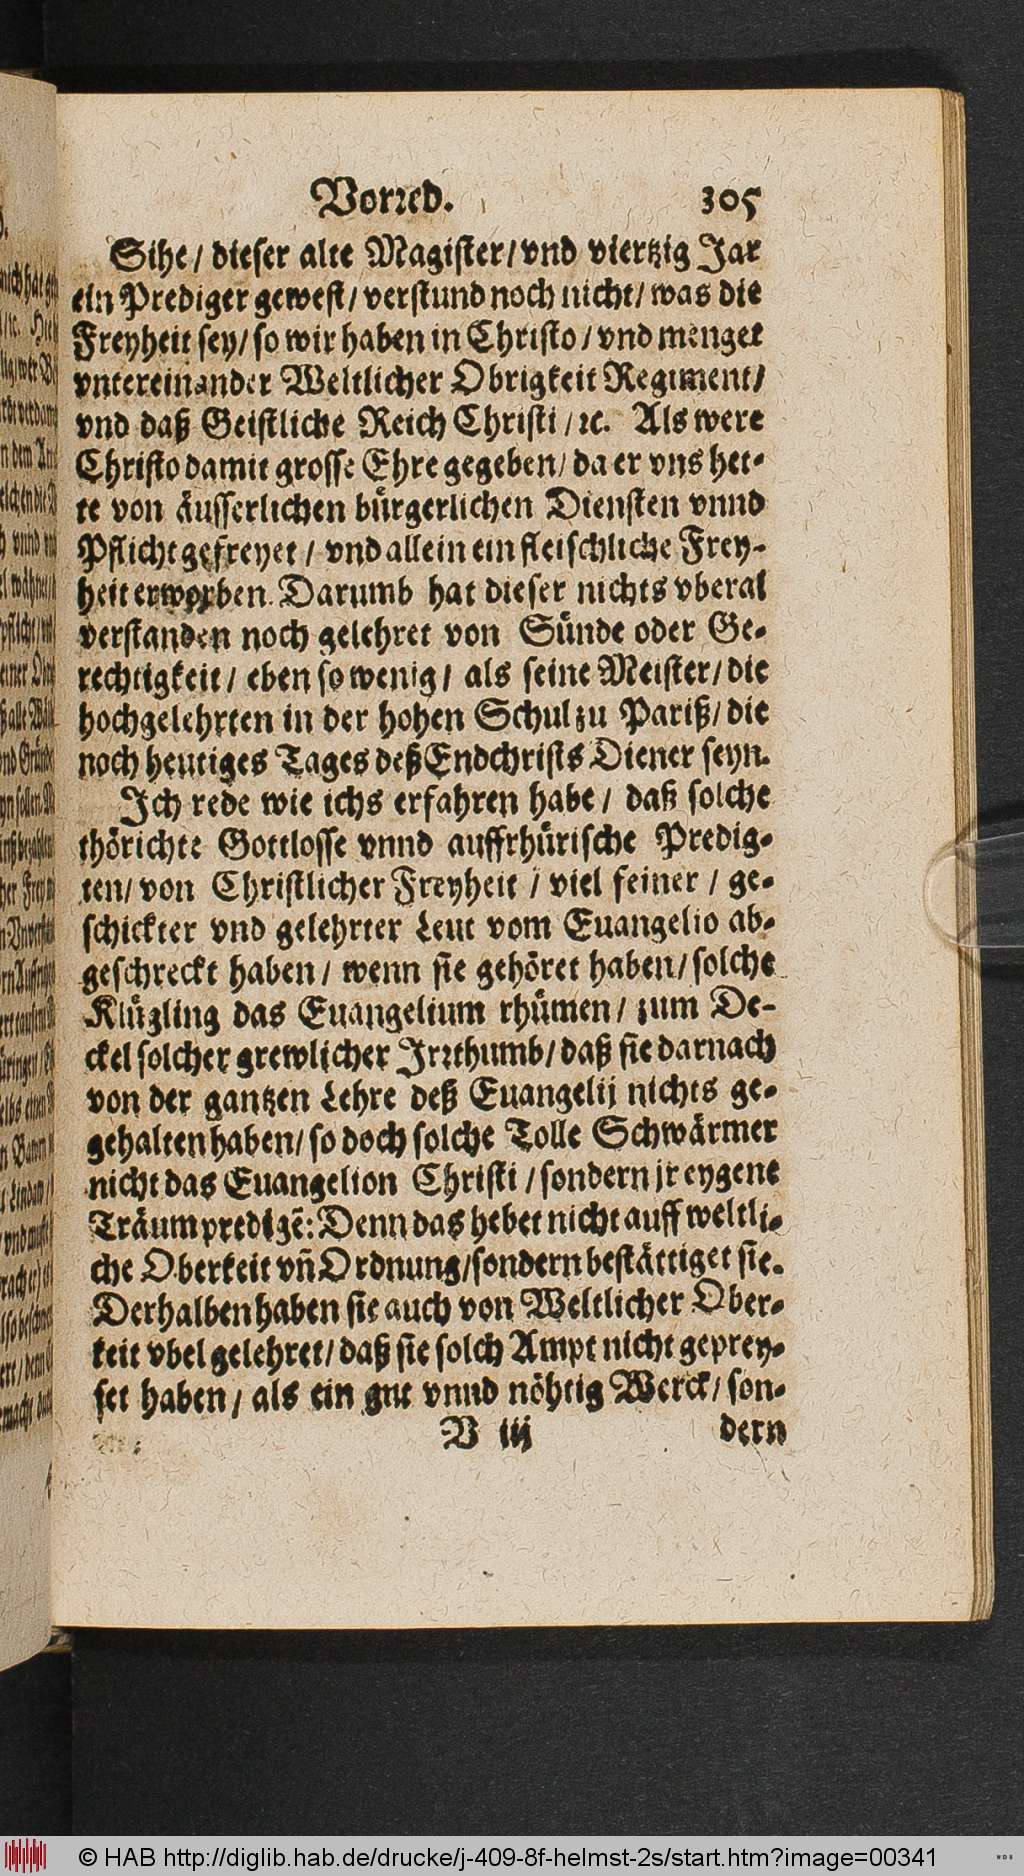 Vorred. 305
Sihe / dieser alte Magister / vnd viertzig Jar
ein Prediger gewest / verstund noch nicht / was die
Freyheit sey / so wir haben in Christo / vnd menget
vntereinander Weltlicher Obrigkeit Regiment /
vnd daß Geistliche Reich Christi / ꝛc. Als were
Christo damit grosse Ehre gegeben / da er vns het-
te von äusserlichen bürgerlichen Diensten vnnd
Pflicht gefreyet / vnd allein ein fleischliche Frey-
heit erworben. Darumb hat dieser nichts vberal
verstanden noch gelehret von Sünde oder Ge-
rechtigkeit / eben so wenig / als seine Meister / die
hochgelehrten in der hohen Schul zu Pariß / die
noch heutiges Tages deß Endchrists Diener seyn.
Ich rede wie ichs erfahren habe / daß solche
thörichte Gottlosse vnnd auffrhürische Predig-
ten / von Christlicher Freyheit / viel feiner / ge-
schickter vnd gelehrter Leut vom Euangelio ab-
geschreckt haben / wenn sie gehöret haben / solche
Klüzling das Euangelium rhümen / zum De-
ckel solcher grewlicher Irrthumb / daß sie darnach
von der gantzen Lehre deß Euangelij nichts ge-
gehalten haben / so doch solche Tolle Schwärmer
nicht das Euangelion Christi / sondern jr eygene
Träum predigẽ: Denn das hebet nicht auff weltli-
che Oberkeit vñ Ordnung / sondern bestättiget sie.
Derhalben haben sie auch von Weltlicher Ober-
keit vbel gelehret / daß sie solch Ampt nicht geprey-
set haben / als ein gut vnnd nöhtig Werck / son-
V iij dern
© HAB http://diglib.hab.de/drucke/j-409-8f-helmst-2s/start.htm?image=00341